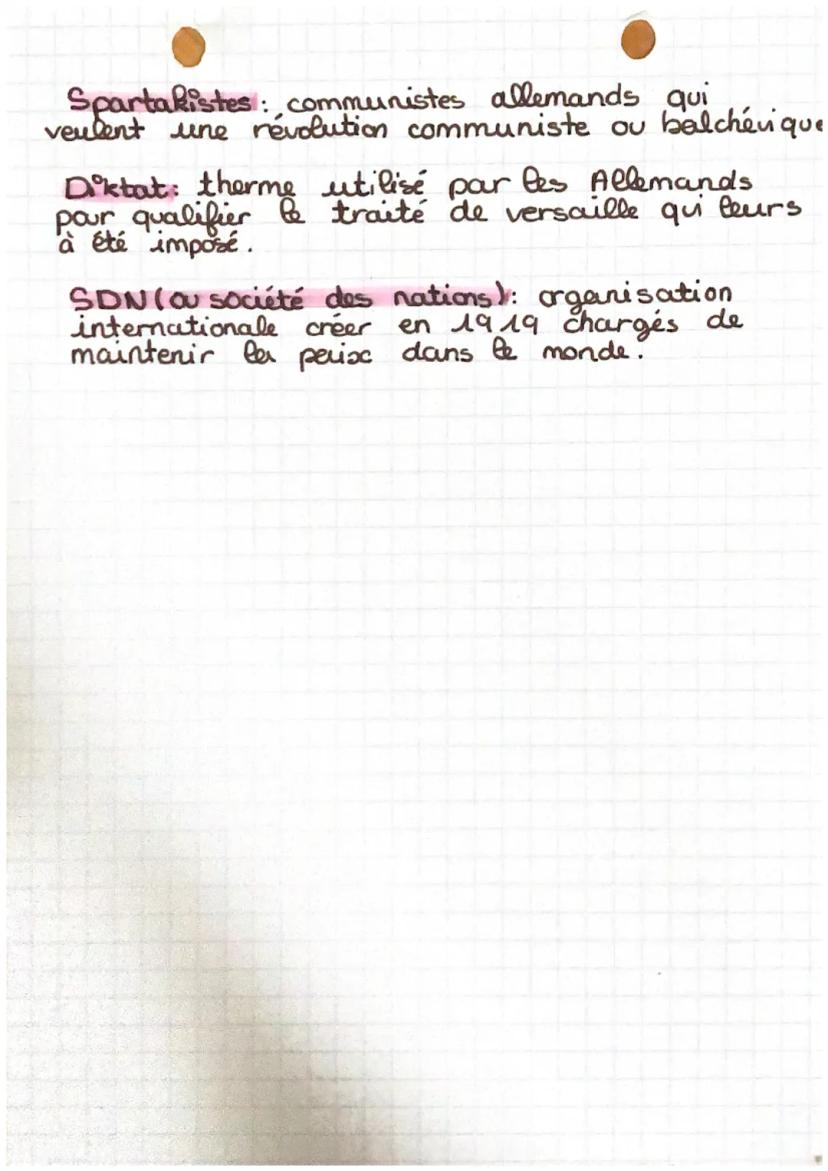 Spartakistes : communistes allemands qui
veulent une révolution communiste ou bolchévique
Diktat : therme utilisé par les Allemands
pour qualifier le traité de versaille qui leurs
à été imposé.
SDN (ou société des nations) : organisation
internationale créer en 1919 chargés de
maintenir la paix dans le monde.